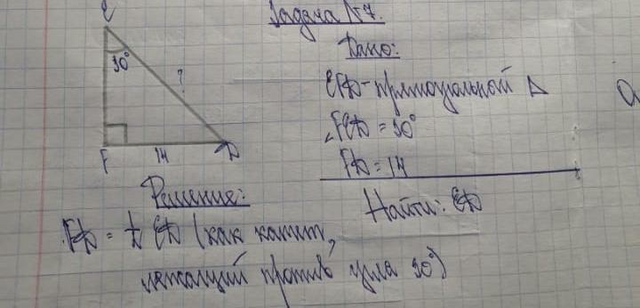 Задача №7.
C
30°
?
F
14
D
Дано:
CFD - прямоугольный Δ
∠FCD = 30°
FD = 14
Найти: CD
Решение:
FD = ½ CD (как катет,
лежащий против угла 30°)